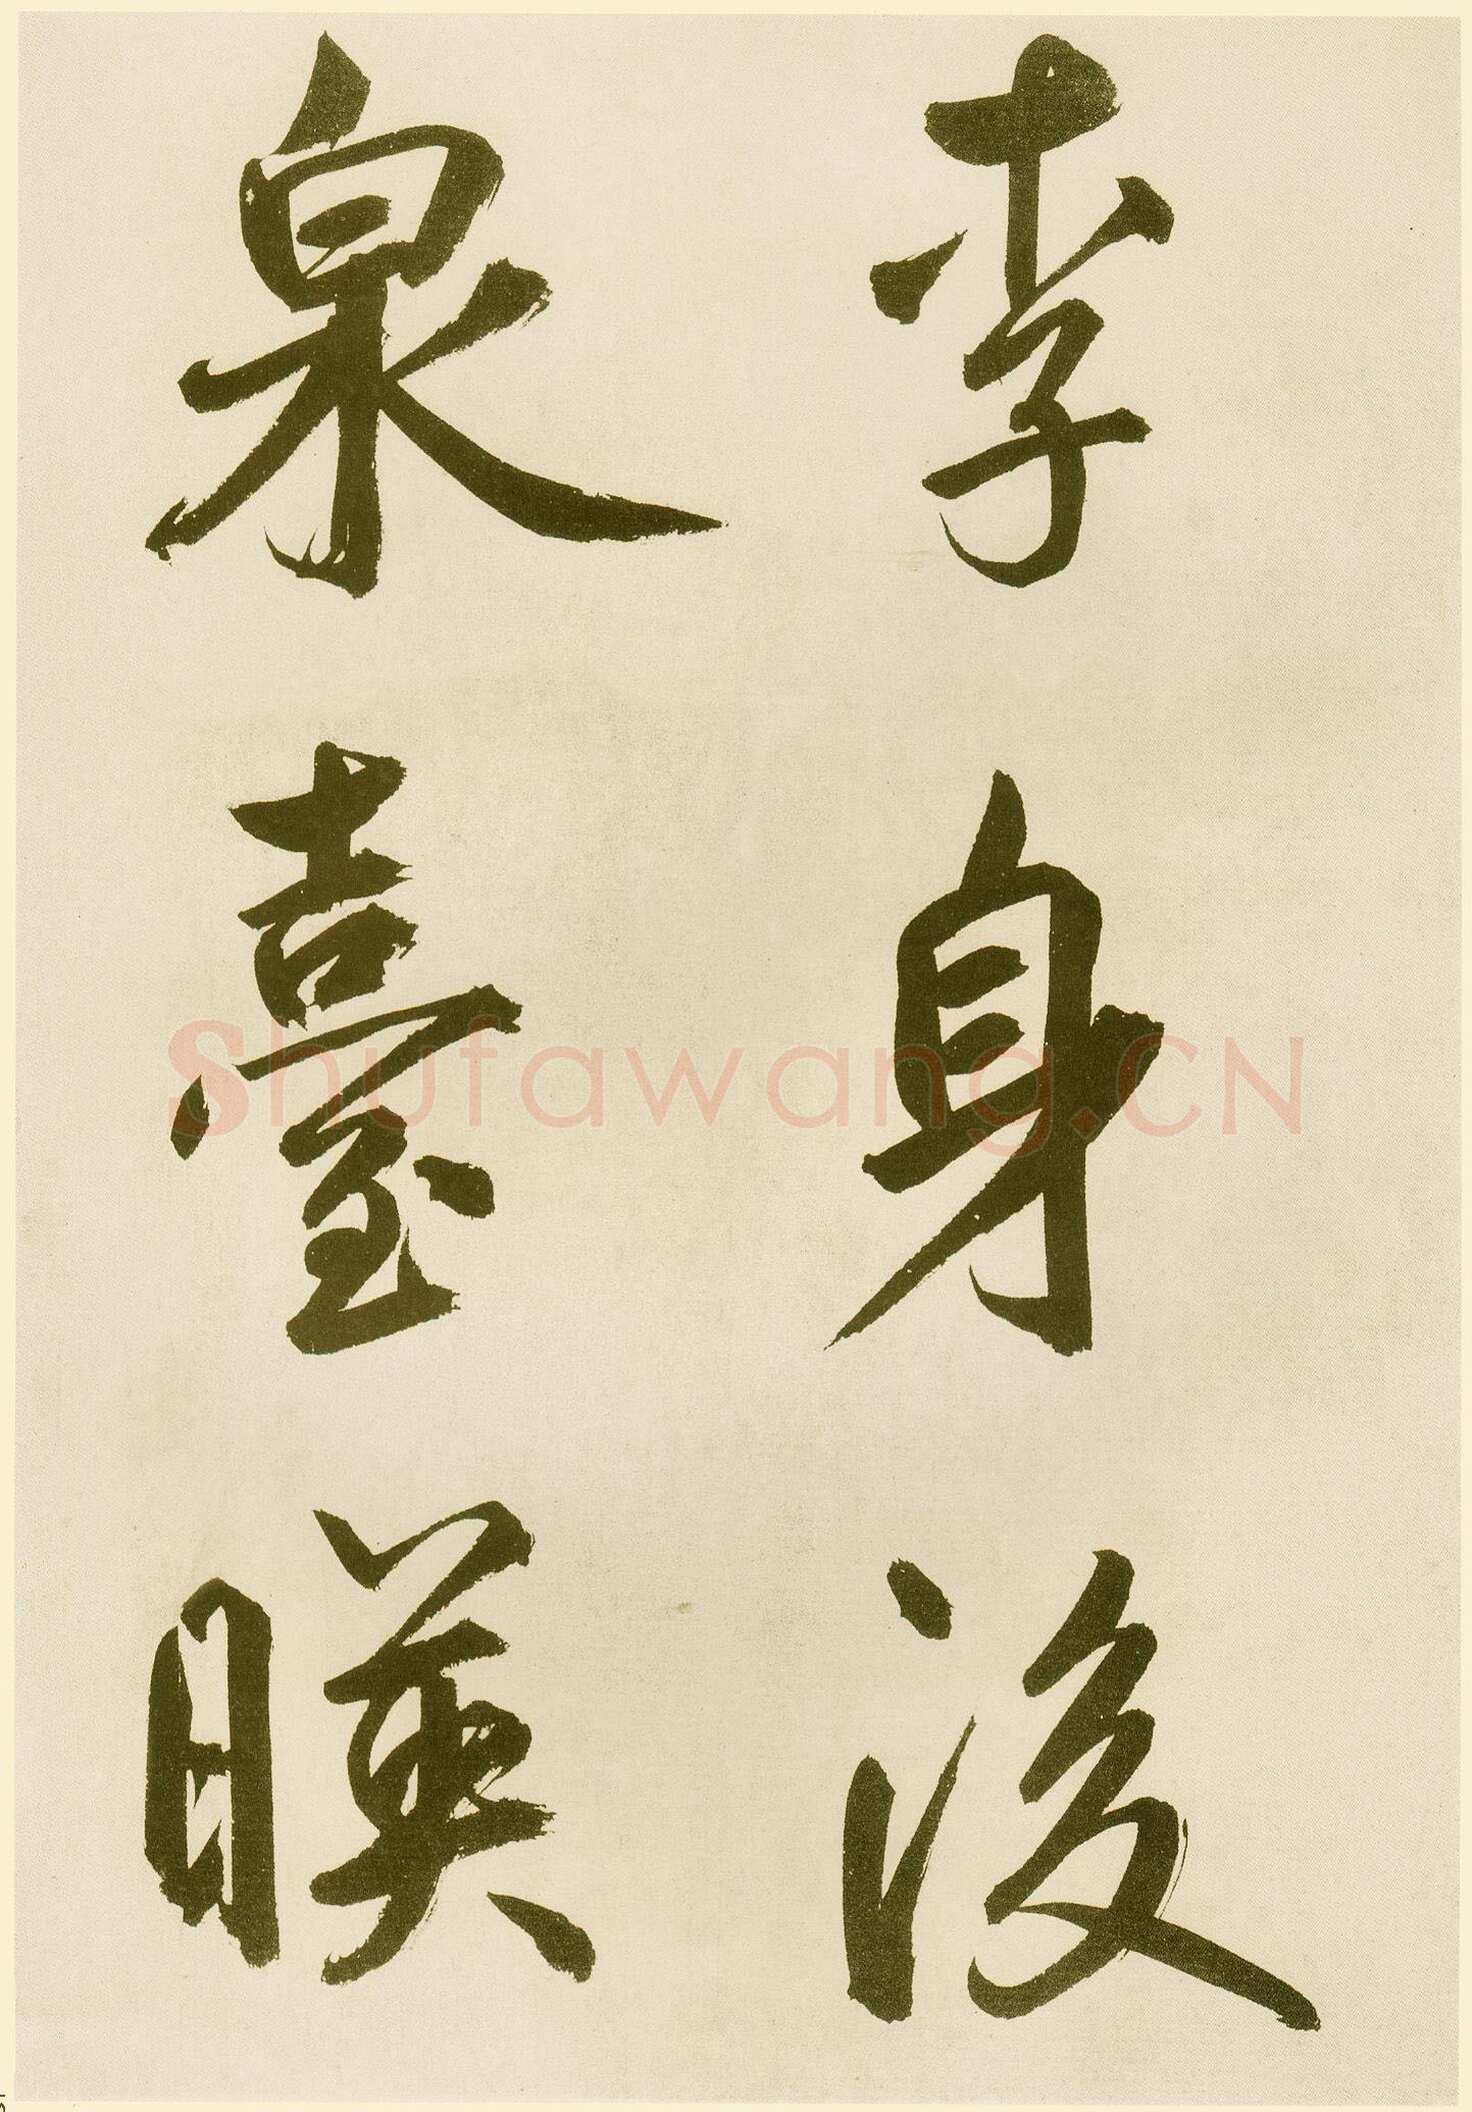 李身後
泉臺暎
Shufawang.CN